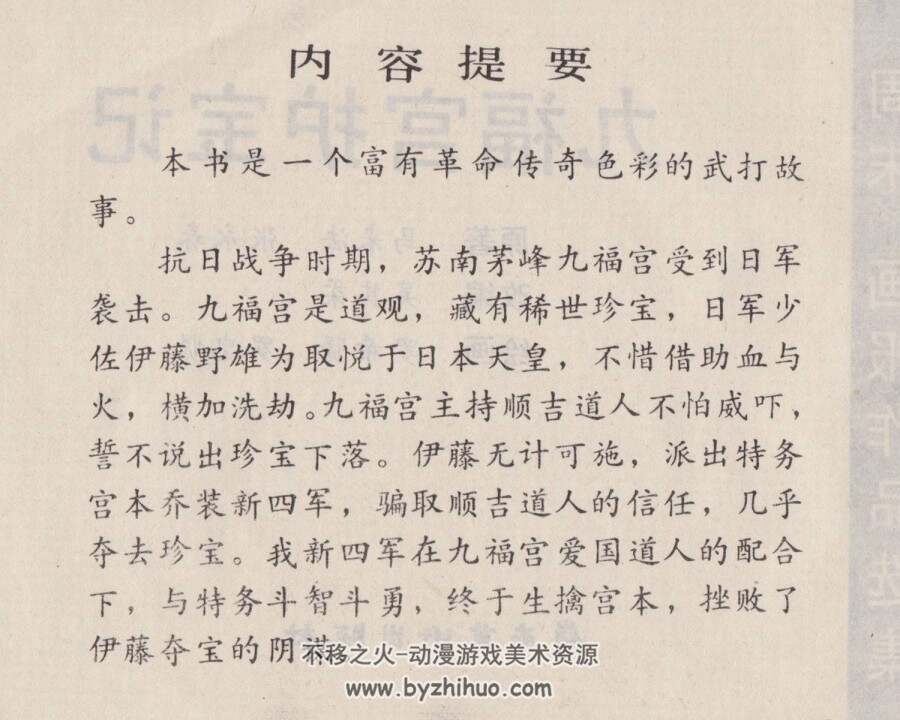 内容提要
本书是一个富有革命传奇色彩的武打故
事。
抗日战争时期，苏南茅峰九福宫受到日军
袭击。九福宫是道观，藏有稀世珍宝，日军少
佐伊藤野雄为取悦于日本天皇，不惜借助血与
火，横加洗劫。九福宫主持顺吉道人不怕威吓，
誓不说出珍宝下落。伊藤无计可施，派出特务
宫本乔装新四军，骗取顺吉道人的信任，几乎
夺去珍宝。我新四军在九福宫爱国道人的配合
下，与特务斗智斗勇，终于生擒宫本，挫败了
伊藤夺宝的阴谋
不移之火-动漫游戏美术资源
www.byzhihuo.com
九福宫护宝记